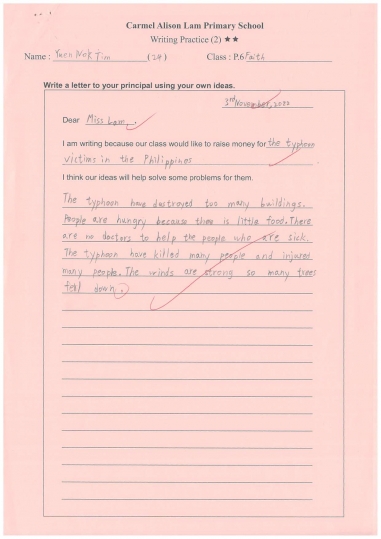 Carmel Alison Lam Primary School
Writing Practice (2) ★★
Name : Yuen Nok Tim (24) Class : P.6 Faith
Write a letter to your principal using your own ideas.
3rd November, 2022
Dear Miss Lam,
I am writing because our class would like to raise money for the typhoon
victims in the Philippines.
I think our ideas will help solve some problems for them.
The typhoon have destroyed too many buildings.
People are hungry because there is little food. There
are no doctors to help the people who are sick.
The typhoon have killed many people and injured
many people. The winds are strong so many trees
fell down.